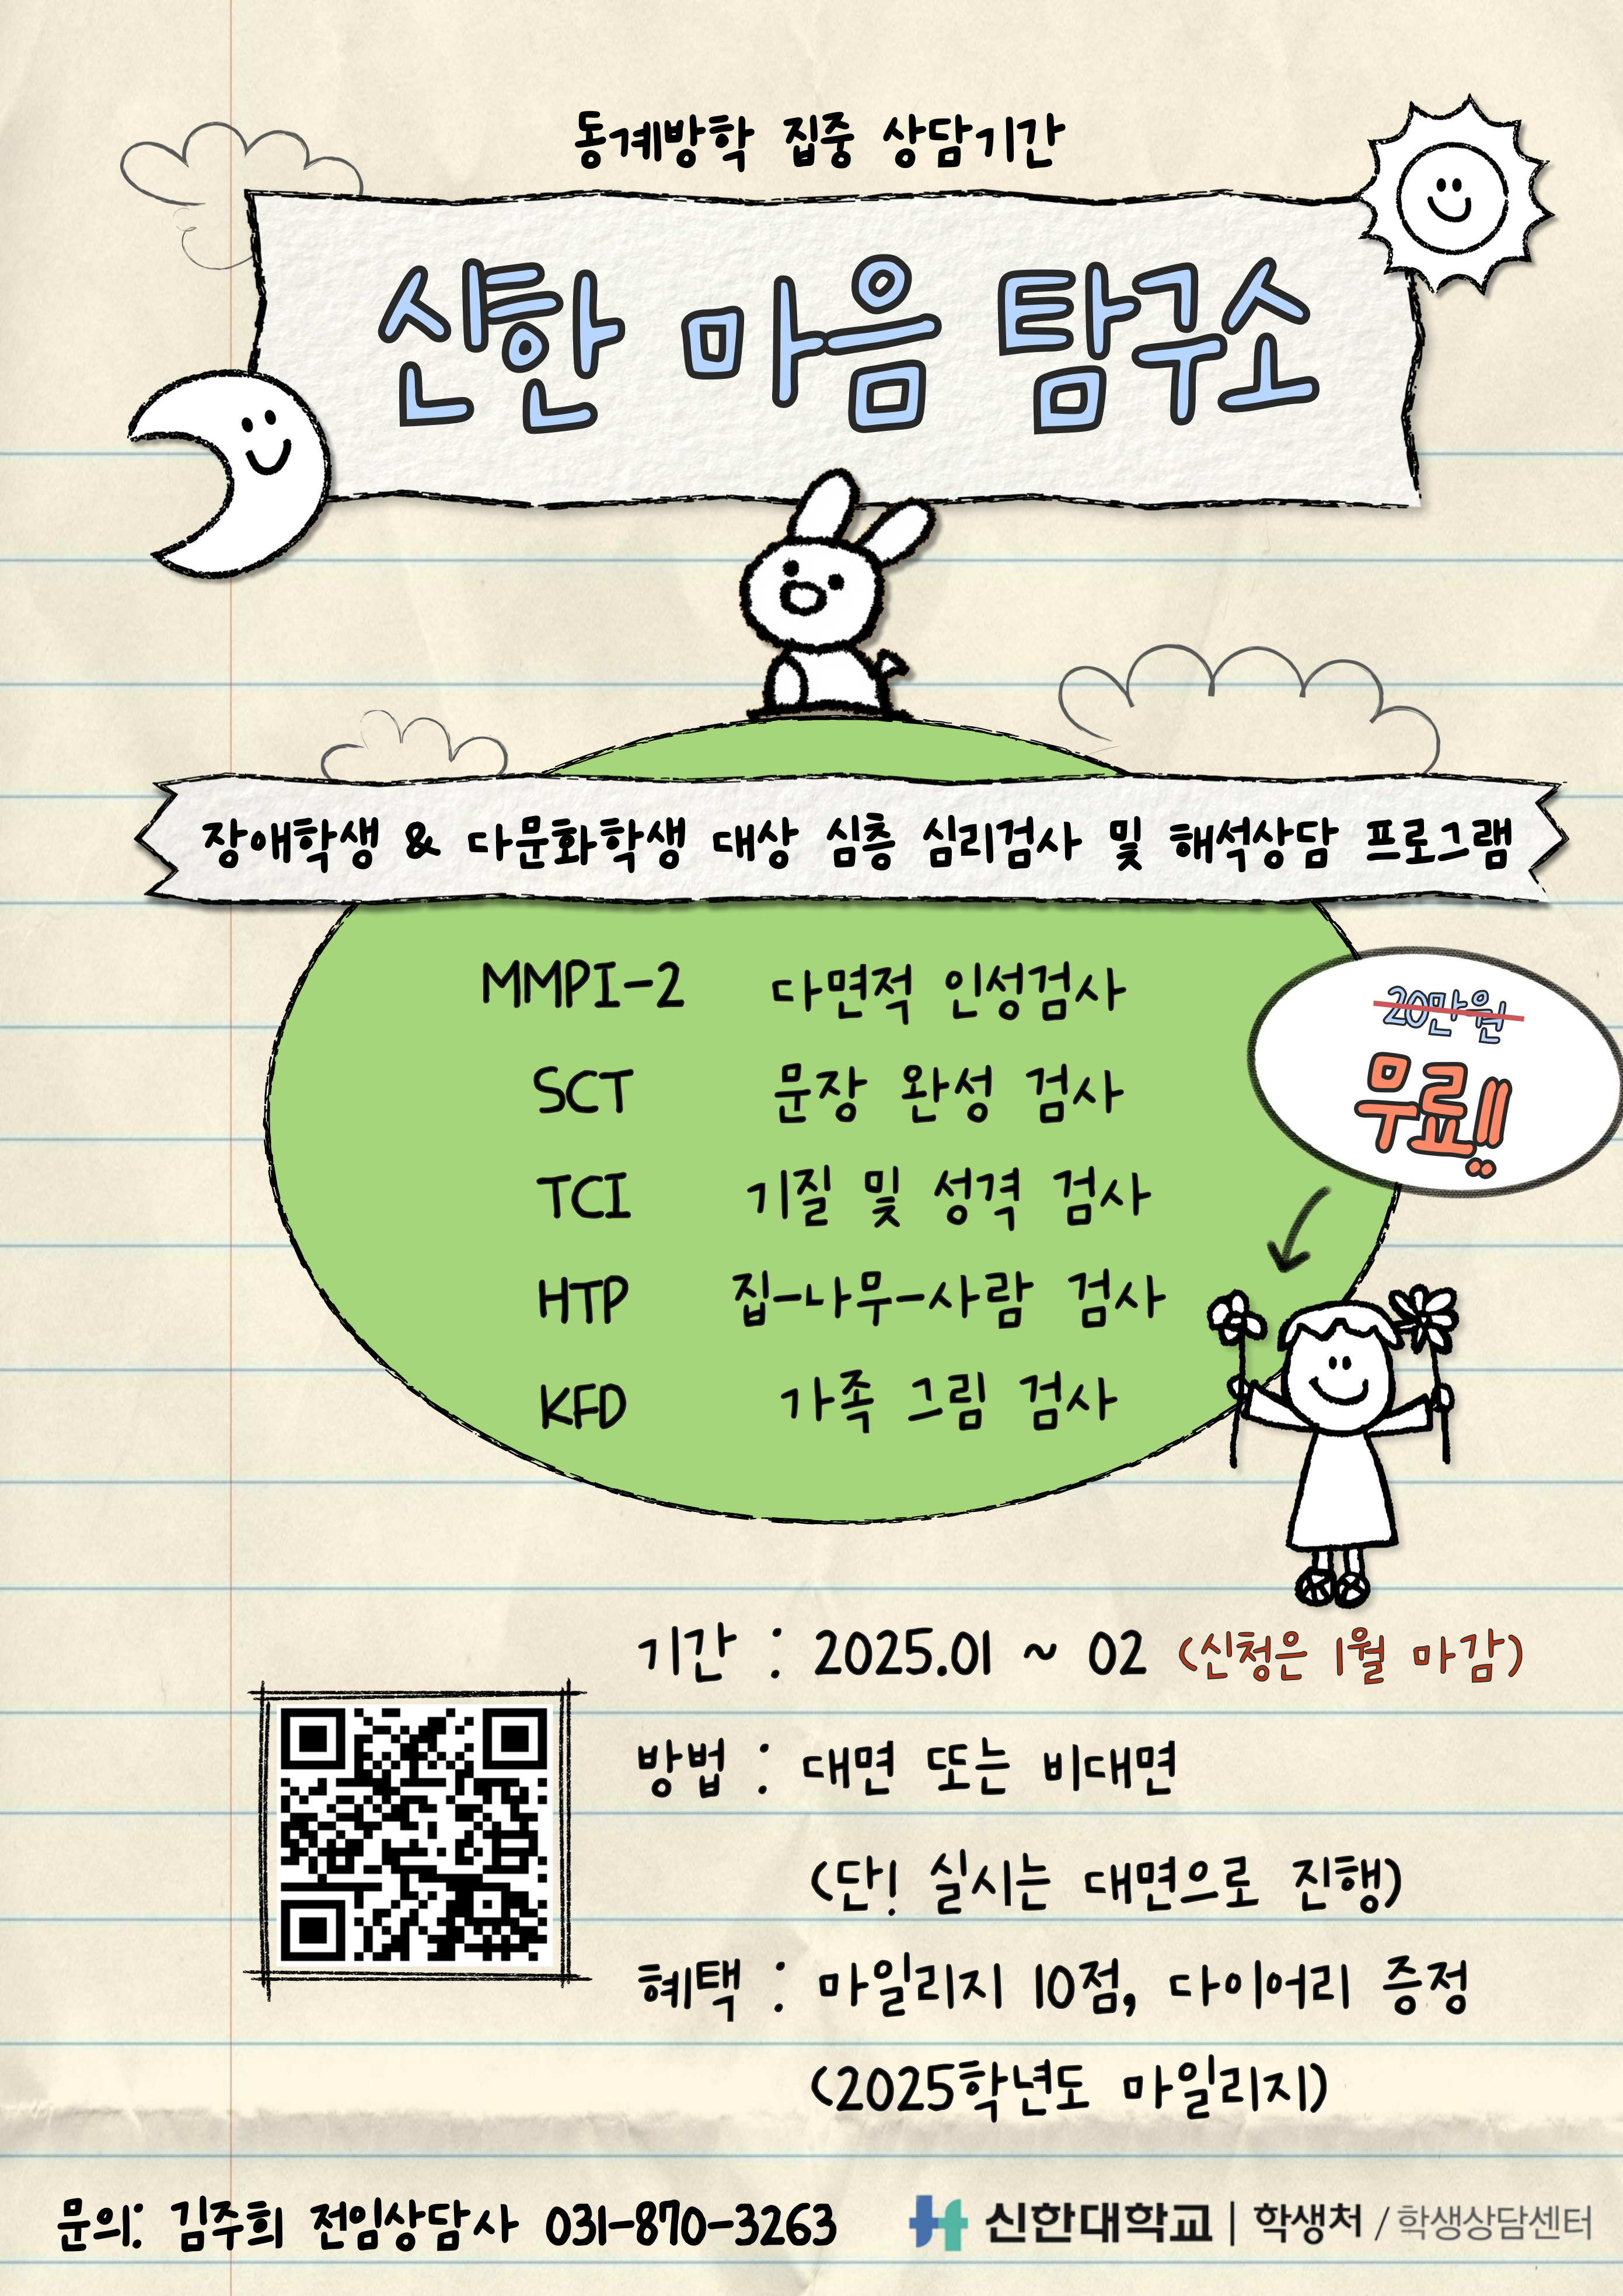 동계방학 집중 상담기간
신한 마음 탐구소
장애학생 & 다문화학생 대상 심층 심리검사 및 해석상담 프로그램
MMPI-2 다면적 인성검사
SCT 문장 완성 검사
TCI 기질 및 성격 검사
HTP 집-나무-사람 검사
KFD 가족 그림 검사
20만원
무료!!
기간 : 2025.01 ~ 02 (신청은 1월 마감)
방법 : 대면 또는 비대면
(단! 실시는 대면으로 진행)
혜택 : 마일리지 10점, 다이어리 증정
(2025학년도 마일리지)
문의: 김주희 전임상담사 031-870-3263
신한대학교 | 학생처 / 학생상담센터